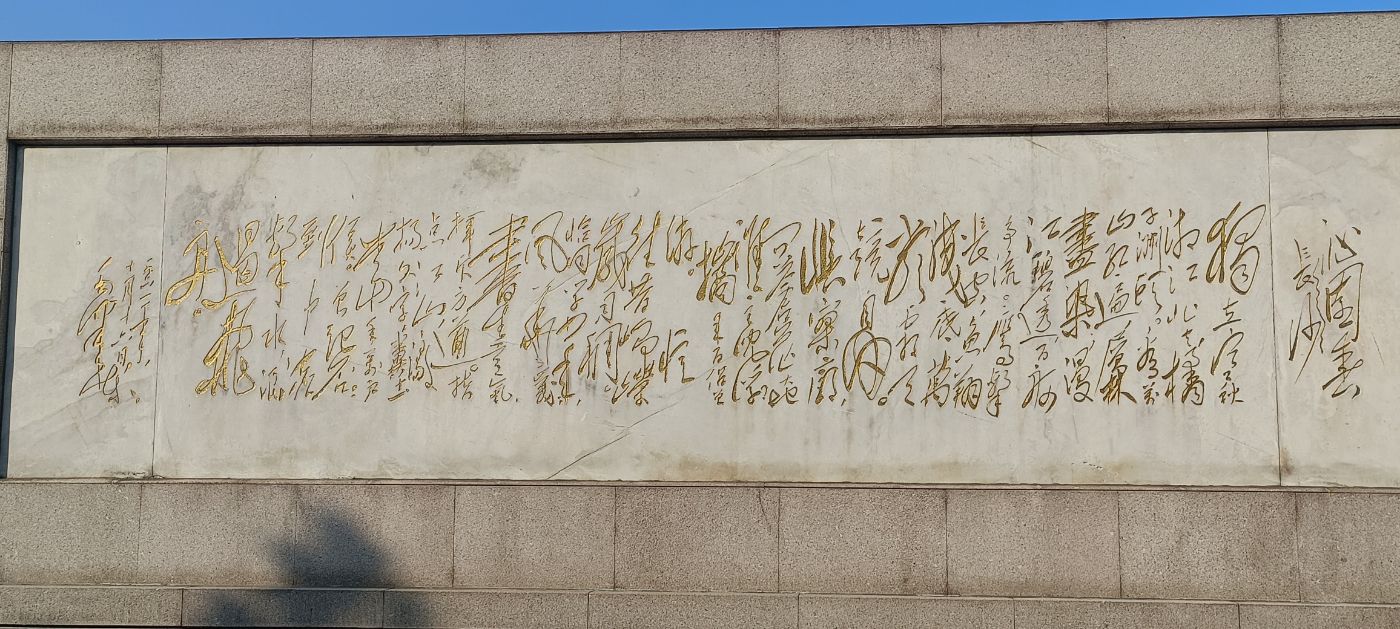 沁园春
长沙
独立寒秋
湘江北去橘
子洲头看万
山红遍层林
尽染漫
江碧透百舸
争流鹰击
长空鱼翔
浅底万
类霜天
竞自由
怅寥廓
问苍茫大地
谁主沉浮
携来百侣
曾游忆
往昔峥嵘
岁月稠
恰同学少年
风华正茂
书生意气
挥斥方遒指
点江山激
扬文字粪土
当年万户
侯曾记否
到中流
击水浪
遏飞
舟
毛泽东